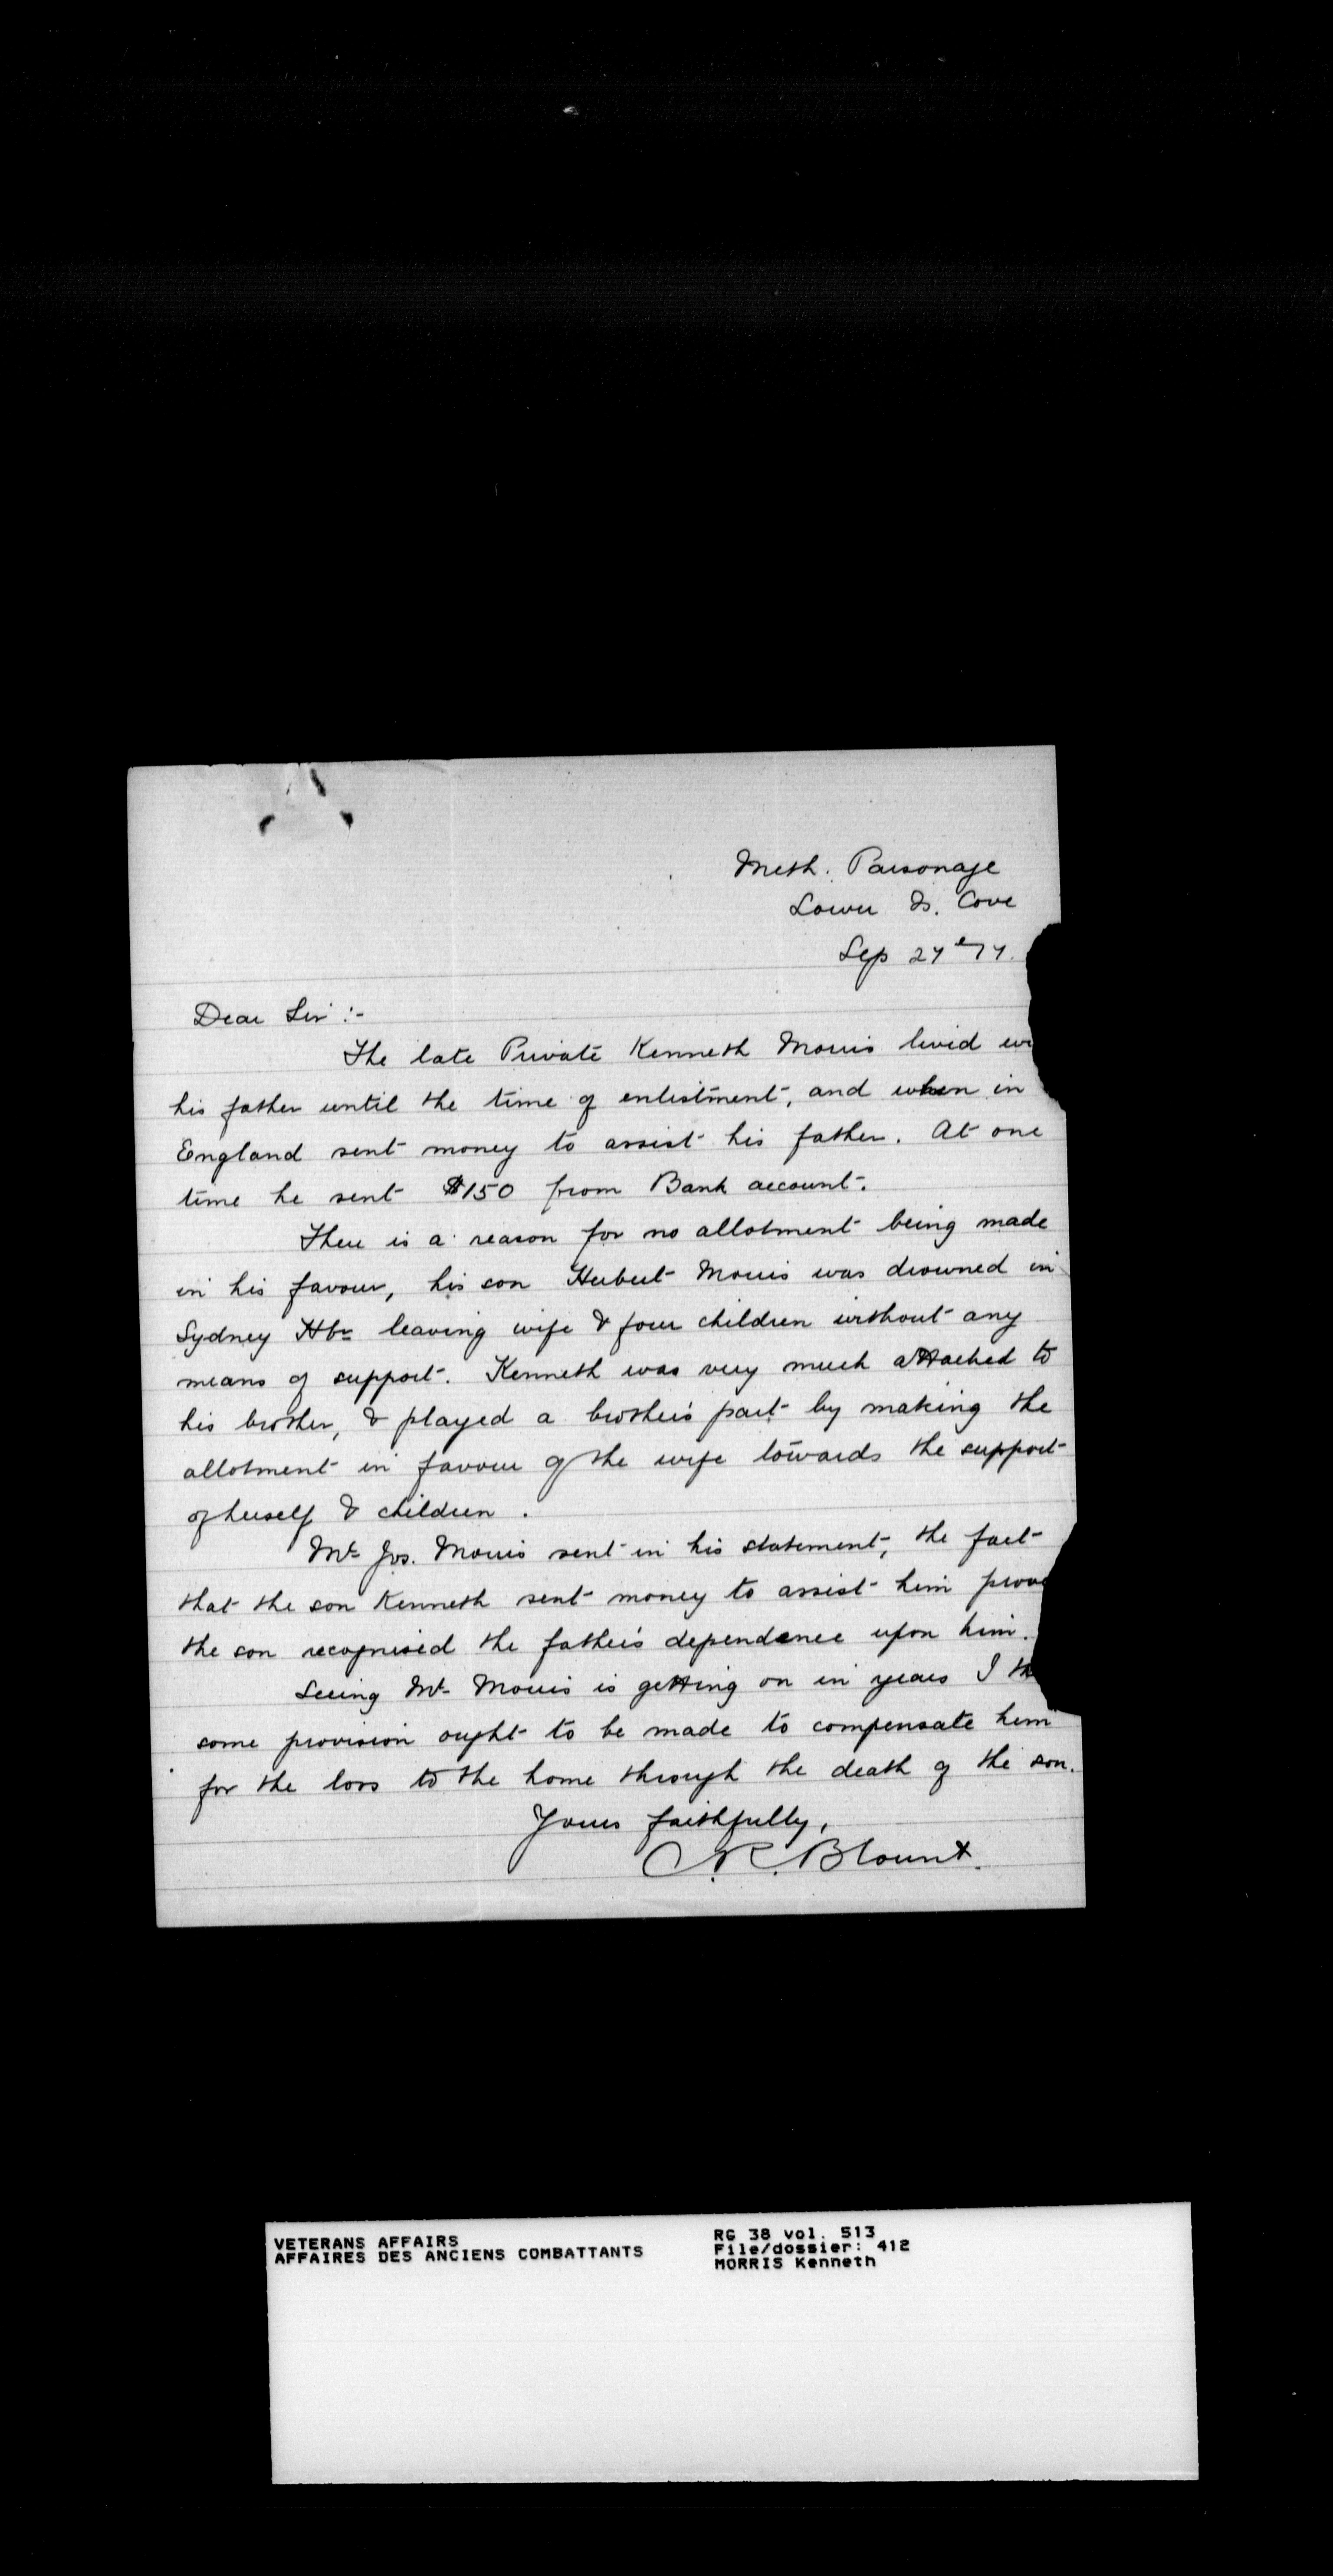 Meth. Parsonage
Lower Is. Cove
Sep 27
Dear Sir :-
The late Private Kenneth Morris lived
his father until the time of enlistment, and when in
England sent money to assist his father. At one
time he sent $150 from Bank account.
There is a reason for no allotment being made
in his favour, his son Herbert Morris was drowned in
Sydney Hbr leaving wife & four children without any
means of support. Kenneth was very much attached to
his brother, & played a brother's part by making the
allotment in favour of the wife towards the support
of herself & children.
Mr Jos. Morris sent in his statement, the fact
that the son Kenneth sent money to assist him
the son recognised the father's dependence upon him.
Seeing Mr Morris is getting on in years I
some provision ought to be made to compensate him
for the loss to the home through the death of the son.
Yours faithfully,
C.R. Blount.
VETERANS AFFAIRS
AFFAIRES DES ANCIENS COMBATTANTS
RG 38 vol. 513
File/dossier: 412
MORRIS Kenneth